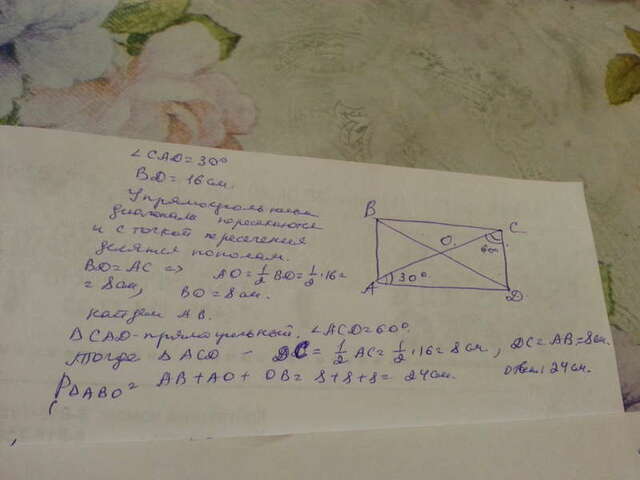 ∠CAD=30°
BD=16см.
У прямоугольника
диагонали пересекаются
и с точкой пересечения
делятся пополам.
BD=AC => AO=½BD=½·16=
=8см, BO=8см.
найдем AB.
ΔCAD-прямоугольный. ∠ACD=60°.
Тогда ΔACD - DC=½AC=½·16=8см, DC=AB=8см.
PΔABO= AB+AO+OB=8+8+8=24см. ответ: 24см.
B
C
O.
60
A
30°.
D